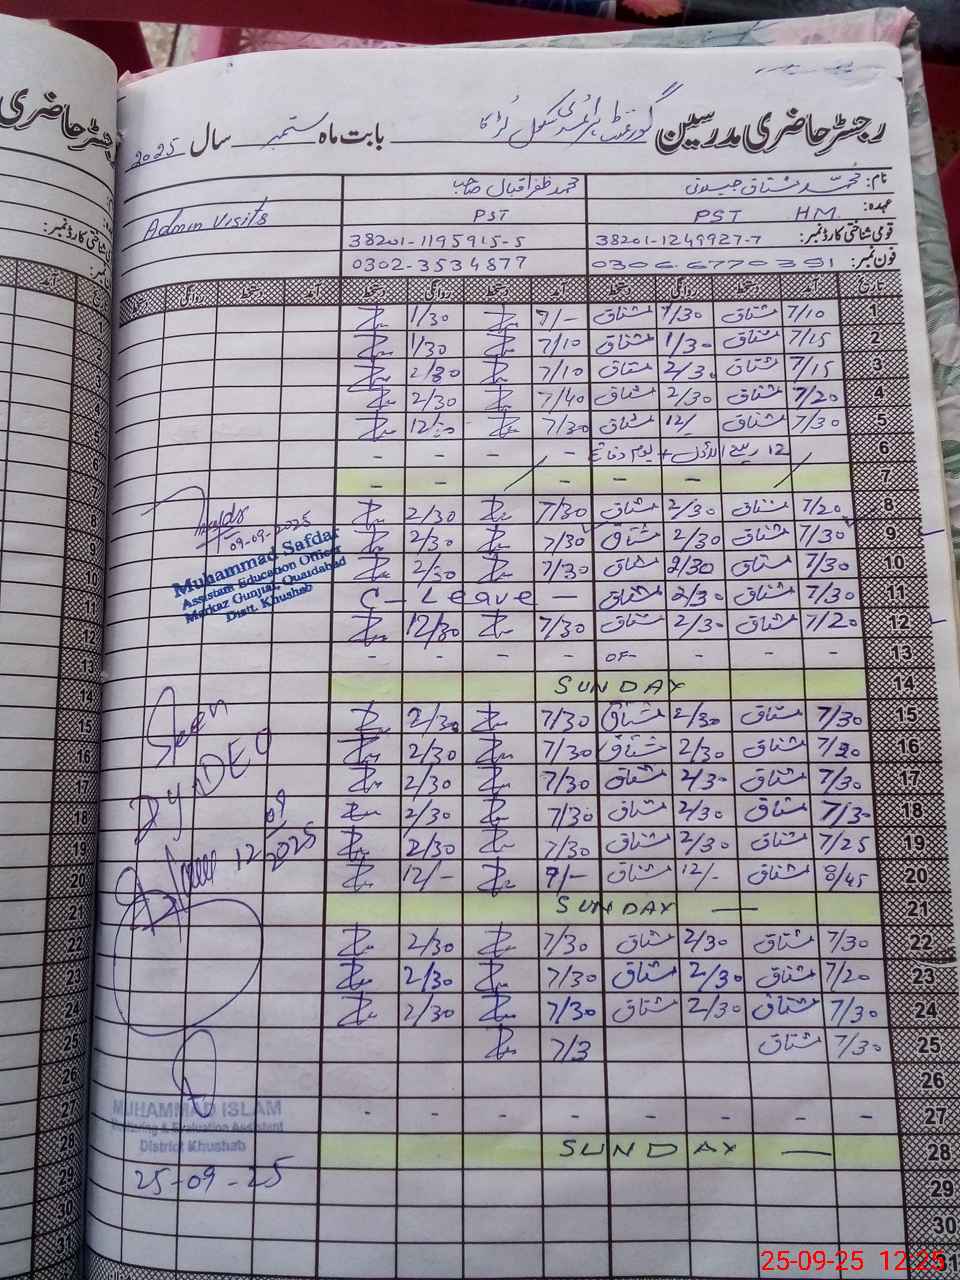 رجسٹر حاضری مدرسین گورنمنٹ پرائمری سکول بابت ماہ ستمبر سال 2025
نام: محمد مشتاق جیلانی محمد ظفر اقبال صاحب
عہدہ: PST HM PST Admin Visits
قومی شناختی کارڈ نمبر: 38201-1249927-7 38201-1195915-5
فون نمبر: 0306-6770391 0302-3534877
تاریخ آمد دستخط روانگی دستخط آمد دستخط روانگی دستخط آمد دستخط روانگی دستخط
1 7/10 مشتاق 1/30 مشتاق 7/- 1/30
2 7/15 مشتاق 1/30 مشتاق 7/10 1/30
3 7/15 مشتاق 2/30 مشتاق 7/10 2/30
4 7/20 مشتاق 2/30 مشتاق 7/40 2/30
5 7/30 مشتاق 12/ مشتاق 7/30 12/
6 12 ربیع الاول + یوم دفاع - - - -
7 - - - - -
8 7/20 مشتاق 2/30 مشتاق 7/30 2/30
9 7/30 مشتاق 2/30 مشتاق 7/30 2/30
10 7/30 مشتاق 2/30 مشتاق 7/30 2/30
11 7/30 مشتاق 2/30 مشتاق C - Leave -
12 7/20 مشتاق 2/30 مشتاق 7/30 12/30
13 - - - OF- - - - -
14 SUNDAY
15 7/30 مشتاق 2/30 مشتاق 7/30 2/30
16 7/20 مشتاق 2/30 مشتاق 7/30 2/30
17 7/30 مشتاق 2/30 مشتاق 7/30 2/30
18 7/30 مشتاق 2/30 مشتاق 7/30 2/30
19 7/25 مشتاق 2/30 مشتاق 7/30 2/30
20 8/45 مشتاق 12/- مشتاق 9/- 12/-
21 SUNDAY —
22 7/30 مشتاق 2/30 مشتاق 7/30 2/30
23 7/20 مشتاق 2/30 مشتاق 7/30 2/30
24 7/30 مشتاق 2/30 مشتاق 7/30 2/30
25 7/30 مشتاق 7/3
26
27 - - - - - - - -
28 SUNDAY —
29
30
31
09-09-2025
Muhammad Safdar
Assistant Education Officer
Markaz Gunjial, Quaidabad
Distt. Khushab
Seen
Dy DEO
12/09/2025
MUHAMMAD ISLAM
Monitoring & Evaluation Assistant
District Khushab
25-09-25
رجسٹر حاضری
25-09-25 12:25